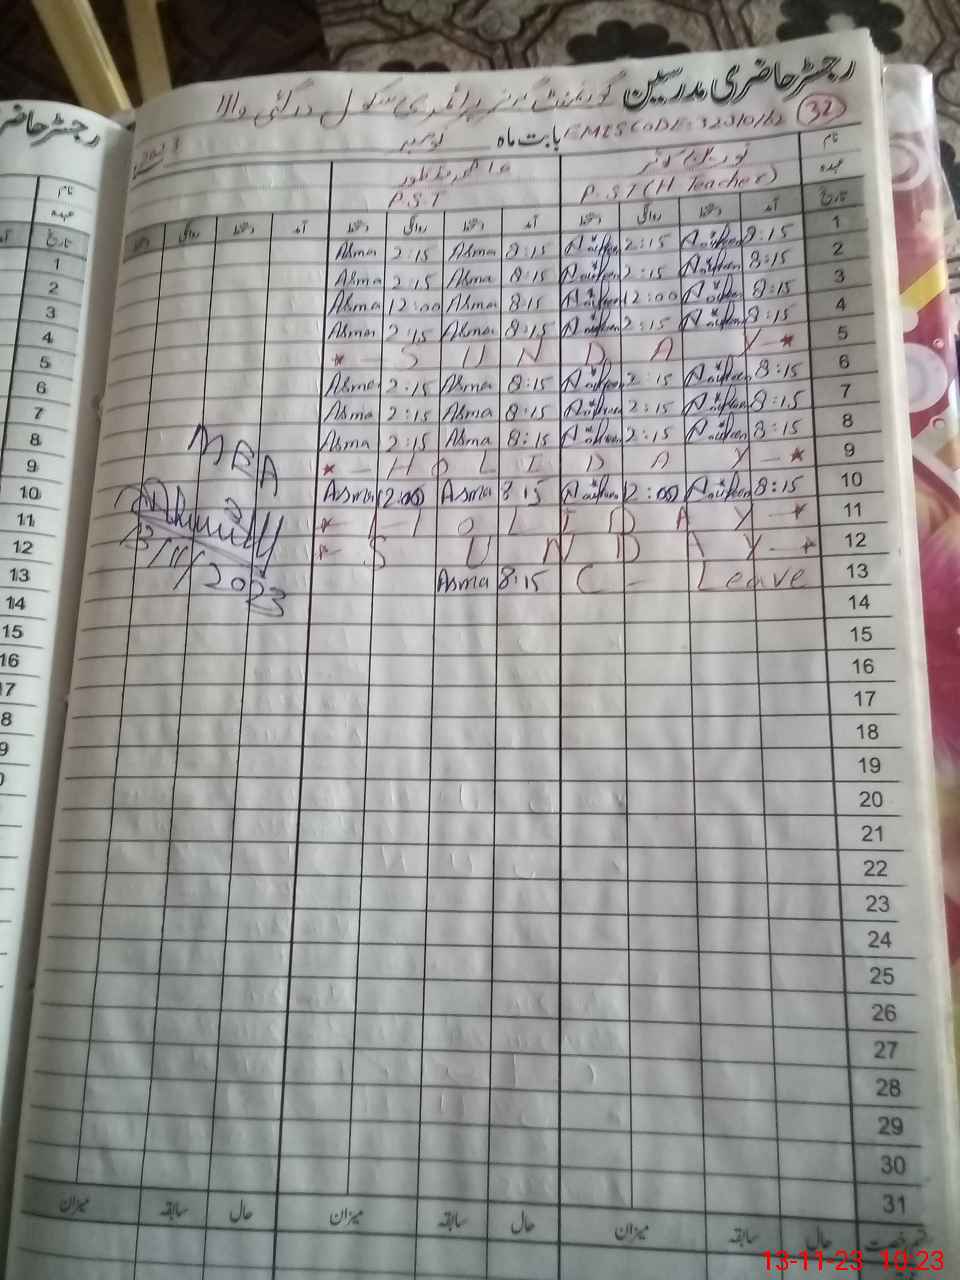 رجسٹر حاضری مدرسین گورنمنٹ گرلز پرائمری سکول درگئی والا
32 EMIS CODE: بابت ماہ نومبر 2023
نام
عہدہ P.S.T (H Teacher) P.S.T
تاریخ آمد دستخط روانگی دستخط آمد دستخط روانگی دستخط آمد دستخط روانگی دستخط
1 8:15 2:15 8:15 Asma 2:15 Asma
2 8:15 2:15 8:15 Asma 2:15 Asma
3 8:15 12:00 8:15 Asma 12:00 Asma
4 8:15 2:15 8:15 Asma 2:15 Asma
5 * - S U N D A Y - *
6 8:15 2:15 8:15 Asma 2:15 Asma
7 8:15 2:15 8:15 Asma 2:15 Asma
8 8:15 2:15 8:15 Asma 2:15 Asma
9 * - H O L I D A Y - *
10 8:15 12:00 8:15 Asma 12:00 Asma
11 * - H O L I D A Y - *
12 * - S U N D A Y - *
13 C - Leave 8:15 Asma
MEA
13/11/2023
14
15
16
17
18
19
20
21
22
23
24
25
26
27
28
29
30
31
حال سابقہ میزان حال سابقہ میزان حال سابقہ میزان
رجسٹر حاضر
نام
عہدہ
تاریخ
1
2
3
4
5
6
7
8
9
10
11
12
13
14
15
16
13-11-23 10:23